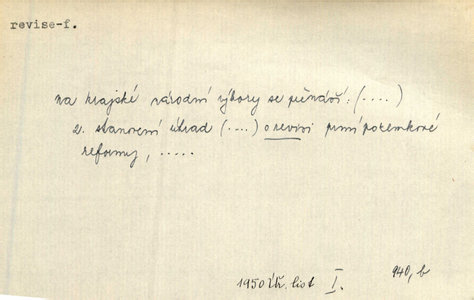 revise-f.
na krajské národní výbory se přenáší: (....)
2. stanovení úhrad (....) o revisi první pozemkové
reformy, .....
1950 Úř. list I. 940, b